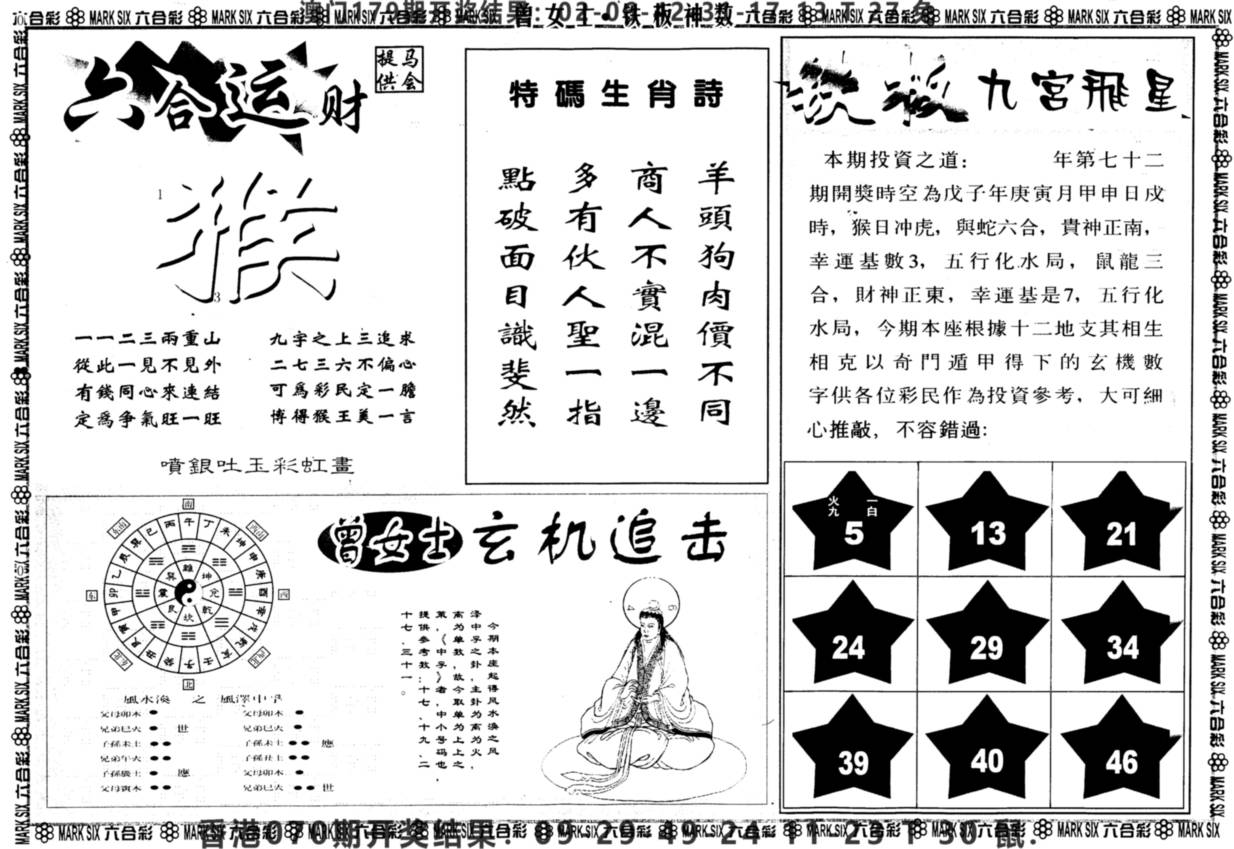 澳门179期开奖结果:
曾女士·铁板神数
六合运财
提供
马会
猴
1
3
一一二三兩重山
從此一見不見外
有錢同心來連結
定為爭氣旺一旺
九字之上三追求
二七三六不偏心
可為彩民定一膽
博得猴王美一言
噴銀吐玉彩虹畫
特碼生肖詩
羊頭狗肉價不同
商人不實混一邊
多有伙人聖一指
點破面目識斐然
九宮飛星
本期投資之道: 年第七十二
期開獎時空為戊子年庚寅月甲申日戍
時，猴日冲虎，與蛇六合，貴神正南，
幸運基數3，五行化水局，鼠龍三
合，財神正東，幸運基是7，五行化
水局，今期本座根據十二地支其相生
相克以奇門遁甲得下的玄機數
字供各位彩民作為投資參考，大可細
心推敲，不容錯過:
火 一
九 白
5 13 21
24 29 34
39 40 46
曾女士玄机追击
今期本座起得风水涣之风
泽中孚之卦，主卦为离为火
南为单数，故今取单为上，
十七、三十一。
南
西南
西
西北
北
东北
东
东南
午 丁 未 坤 申 庚 酉 辛 戌 乾 亥 壬 子 癸 丑 艮 寅 甲 卯 乙 辰 巽 巳 丙
離 坤 兌 乾 坎 艮 震 巽
風水渙 之 風澤中孚
父母卯木
兄弟巳火 世
子孫未土
兄弟午火
子孫辰土 應
父母寅木
父母卯木
兄弟巳火
子孫未土 應
子孫丑土
父母卯木
兄弟巳火 世
香港070期开奖结果: 09-29-49-24-11-23 T 30 鼠.
MARK SIX 六合彩